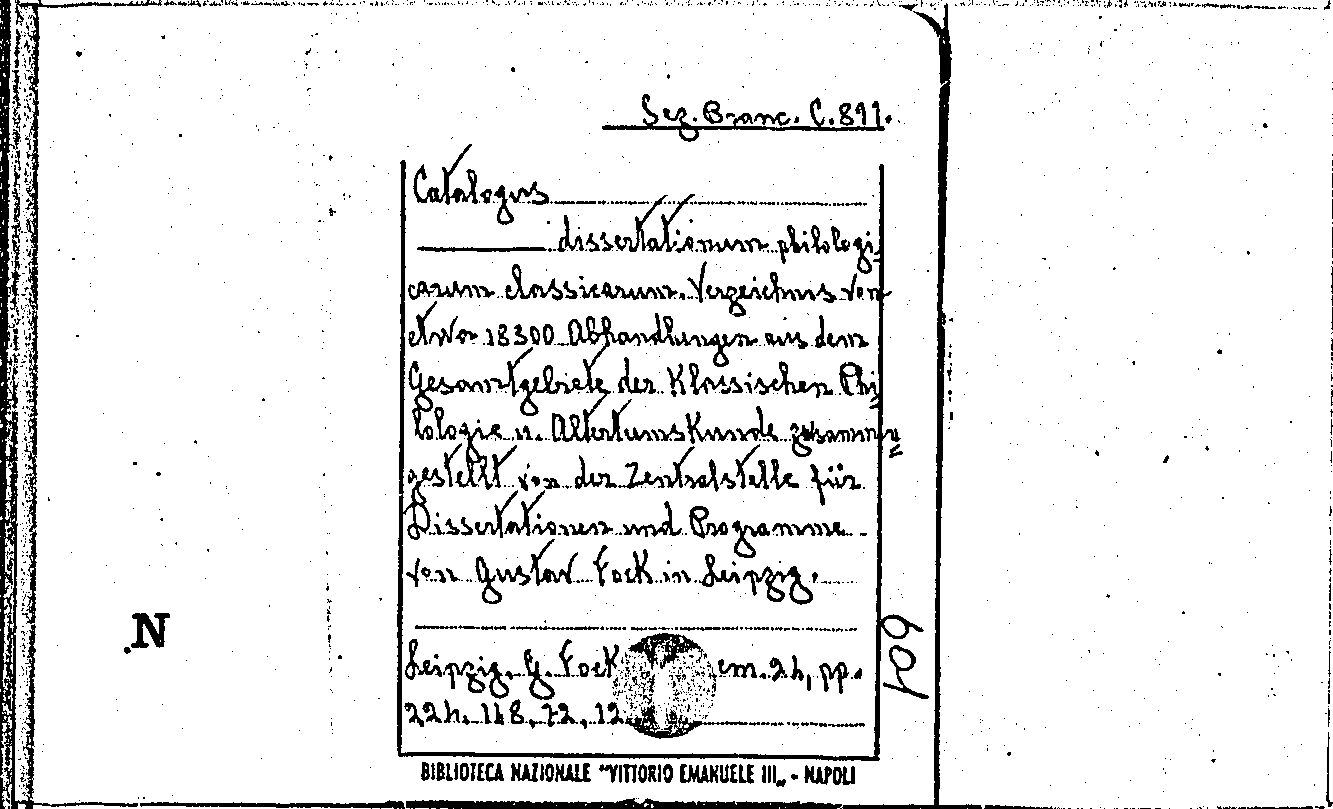 Sez. Branc. C.811.
Catalogus
dissertationum philologi=
carum classicarum. Verzeichnis von
etwa 18300 Abhandlungen aus dem
Gesamtgebiete der Klassischen Phi=
lologie u. Altertumskunde zusamm=
gestellt von der Zentralstelle für
Dissertationen und Programme
von Gustav Fock in Leipzig.
Leipzig. G. Fock cm. 24, pp.
224, 118, 72, 12
BIBLIOTECA NAZIONALE "VITTORIO EMANUELE III„ - NAPOLI
N
609